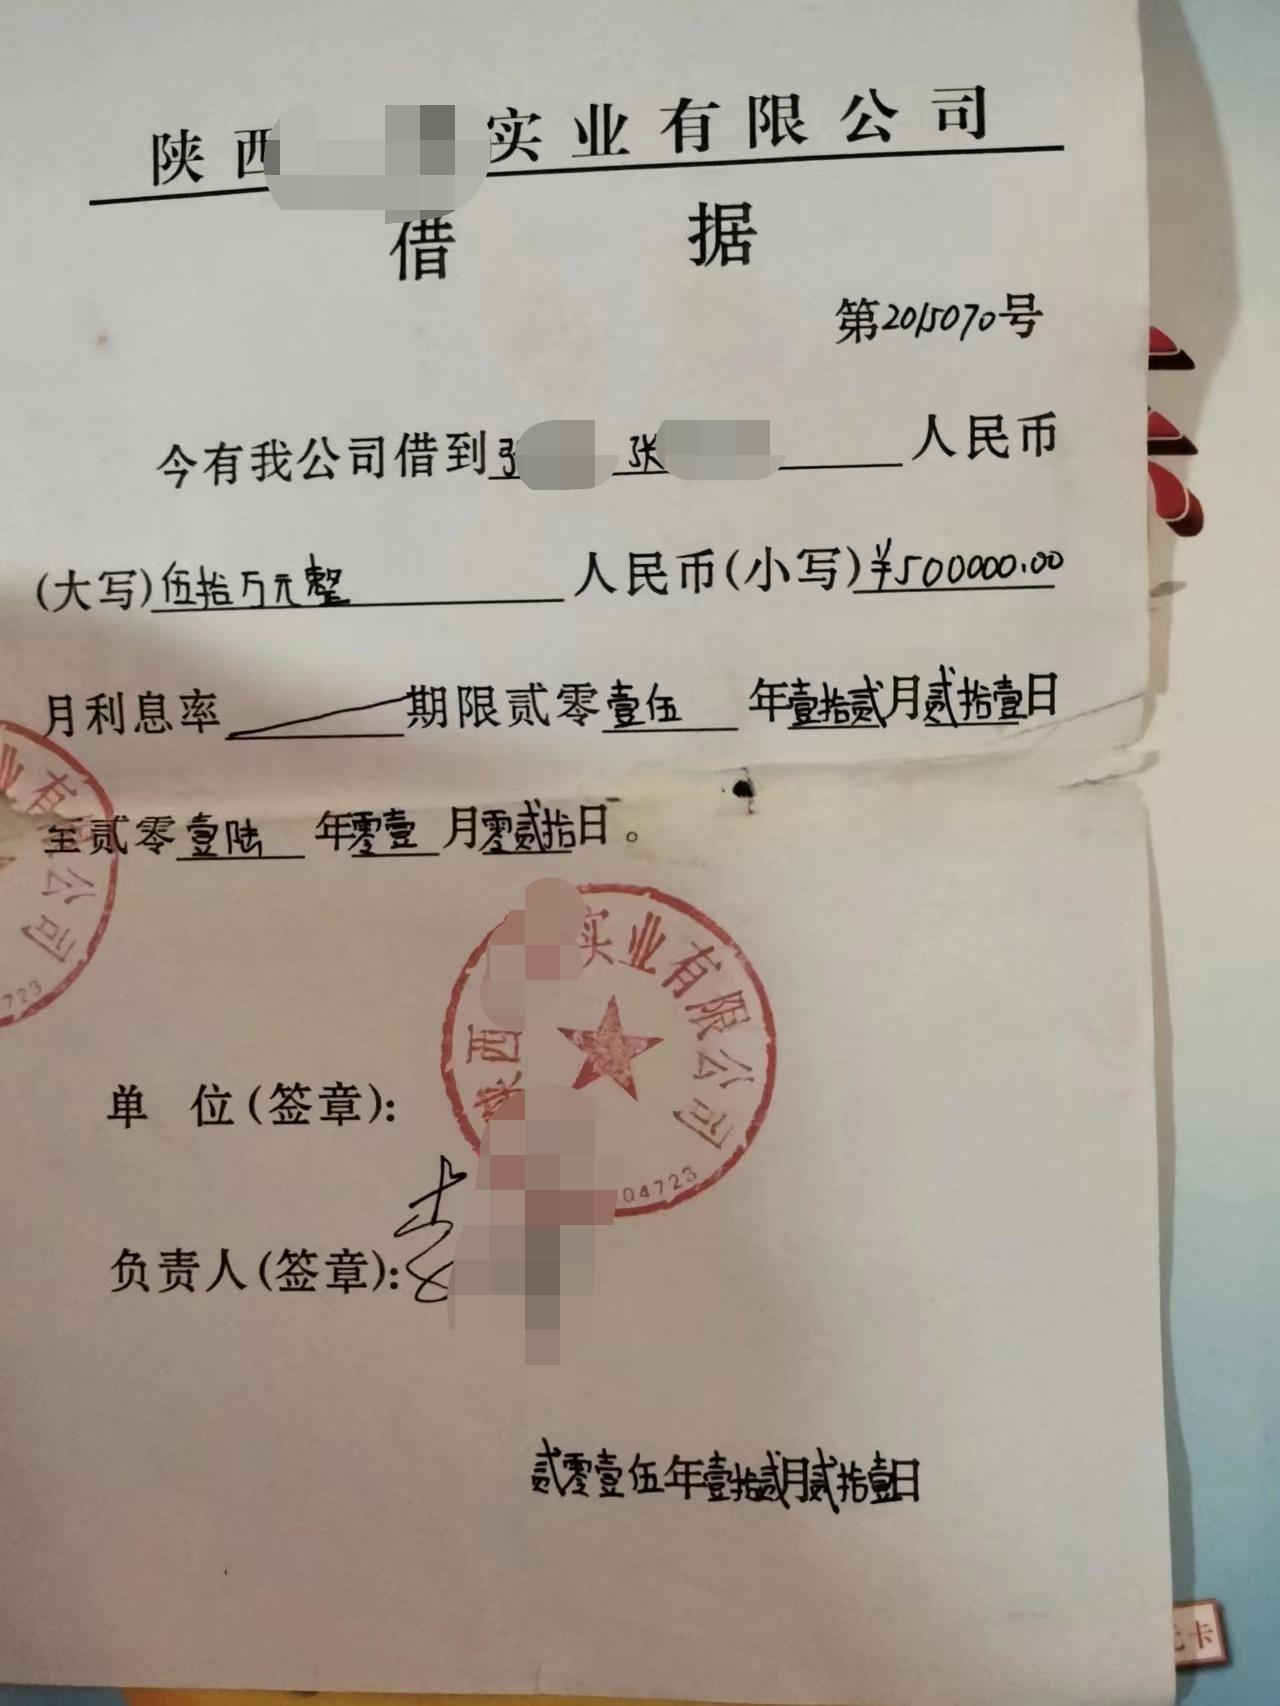 陕西 实业有限公司
借 据
第2015070号
今有我公司借到 张 人民币
(大写)伍拾万元整 人民币(小写)¥500000.00
月利息率 期限贰零壹伍 年壹拾贰月贰拾壹日
业有 公司
723
至贰零壹陆 年零壹月零贰拾日。
陕西 实业有限公司
04723
单 位(签章):
负责人(签章):
贰零壹伍年壹拾贰月贰拾壹日
卡